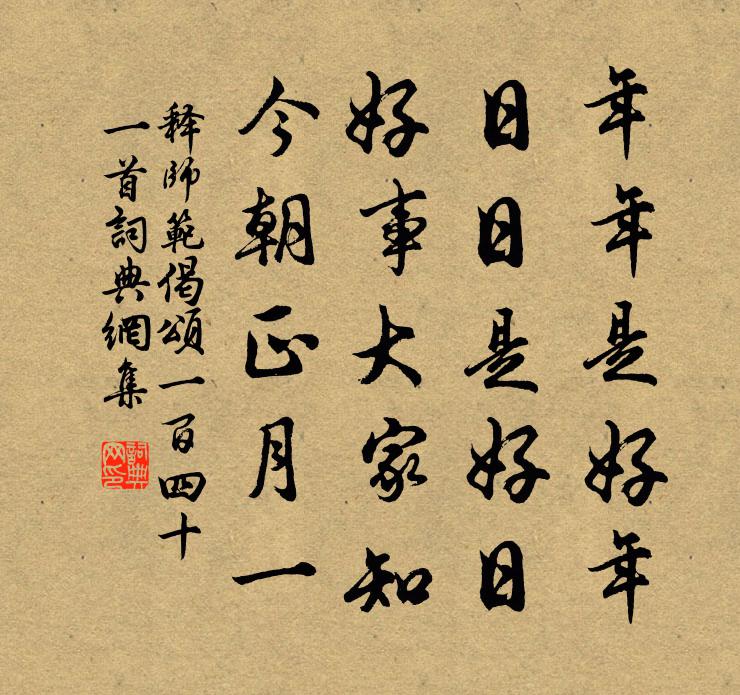 年年是好年
日日是好日
好事大家知
今朝正月一
釋師範偈頌一百四十
一首詞典網集
詞典
网印